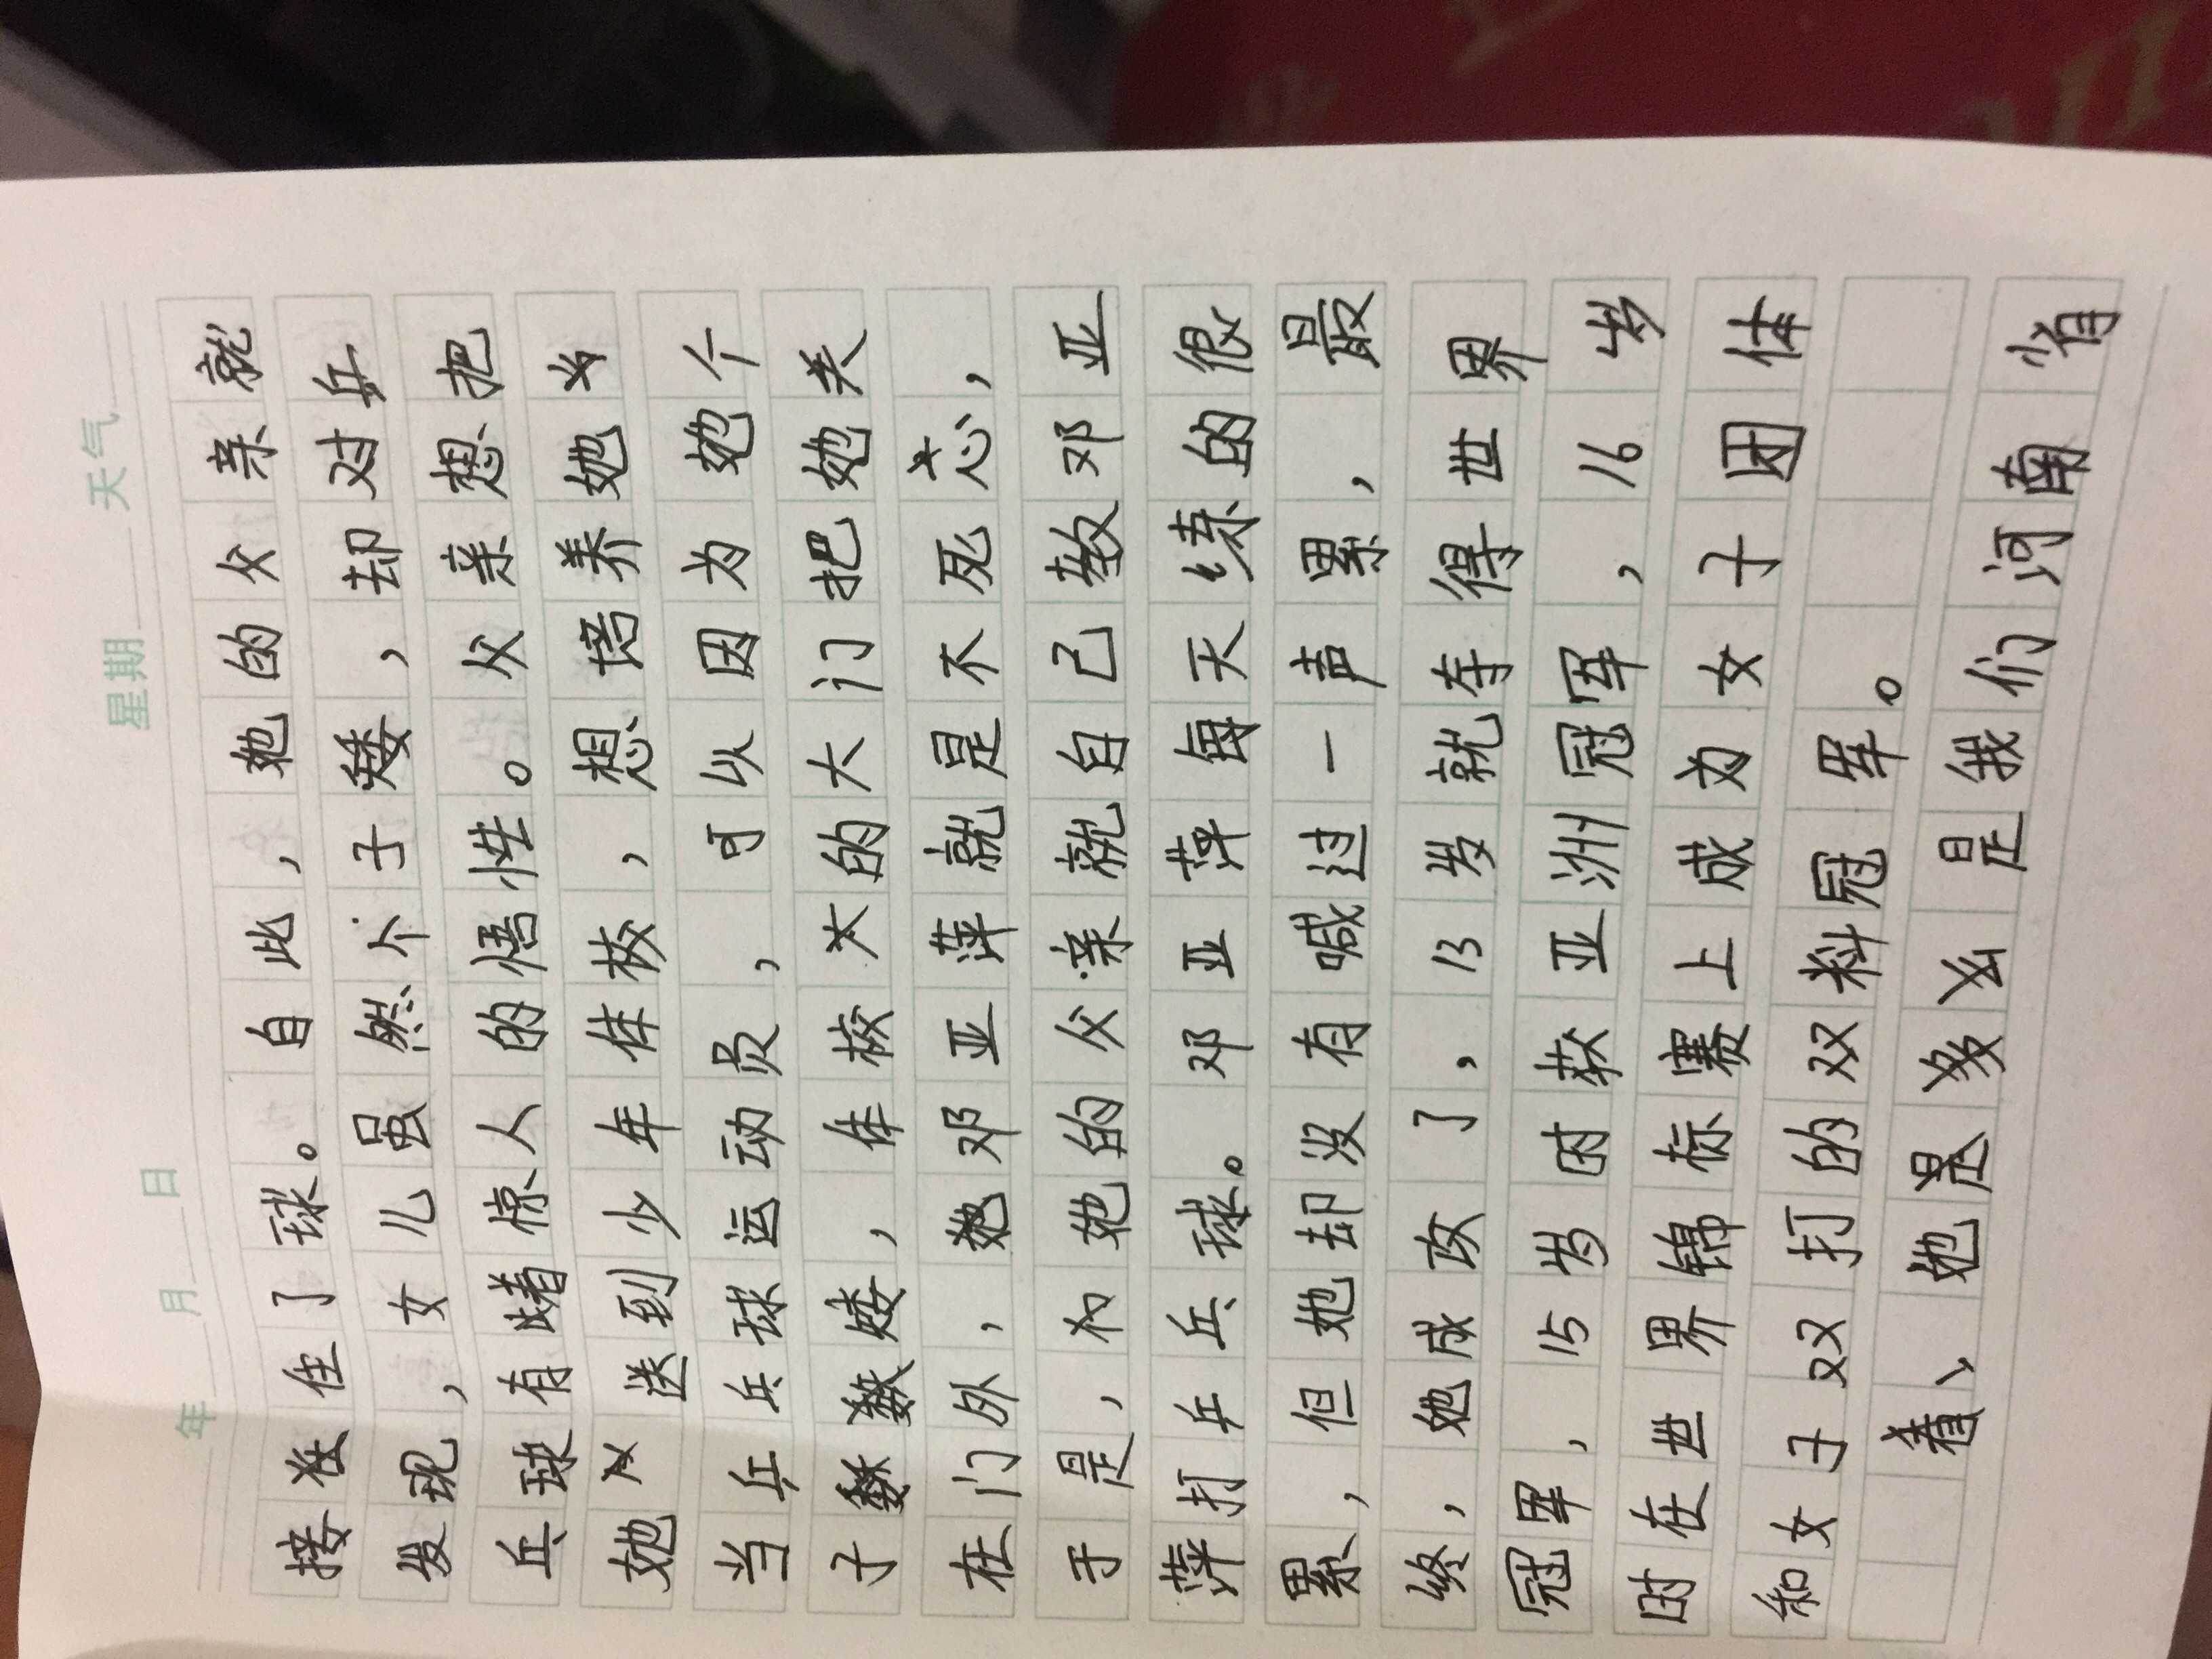 年 月 日 星期 天气
接住了球。自此,她的父亲就
发现,女儿虽然个子矮,却对乒
乓球有着惊人的悟性。父亲想把
她送到少年体校,想培养她当
当乒乓球运动员,可以因为她个
子矮,体校的大门把她关
在门外,邓亚萍就是不死心,
于是,她的父亲就自己教邓亚
萍打乒乓球。邓亚萍每天练的很
累,但她却没有喊过一声累,最
终,她成攻了,13岁就夺得世界
冠军,15岁时获亚洲冠军,16岁
时在世界锦标赛上成为女子团体
和女子双打的双料冠军。
看、她是我们河南省